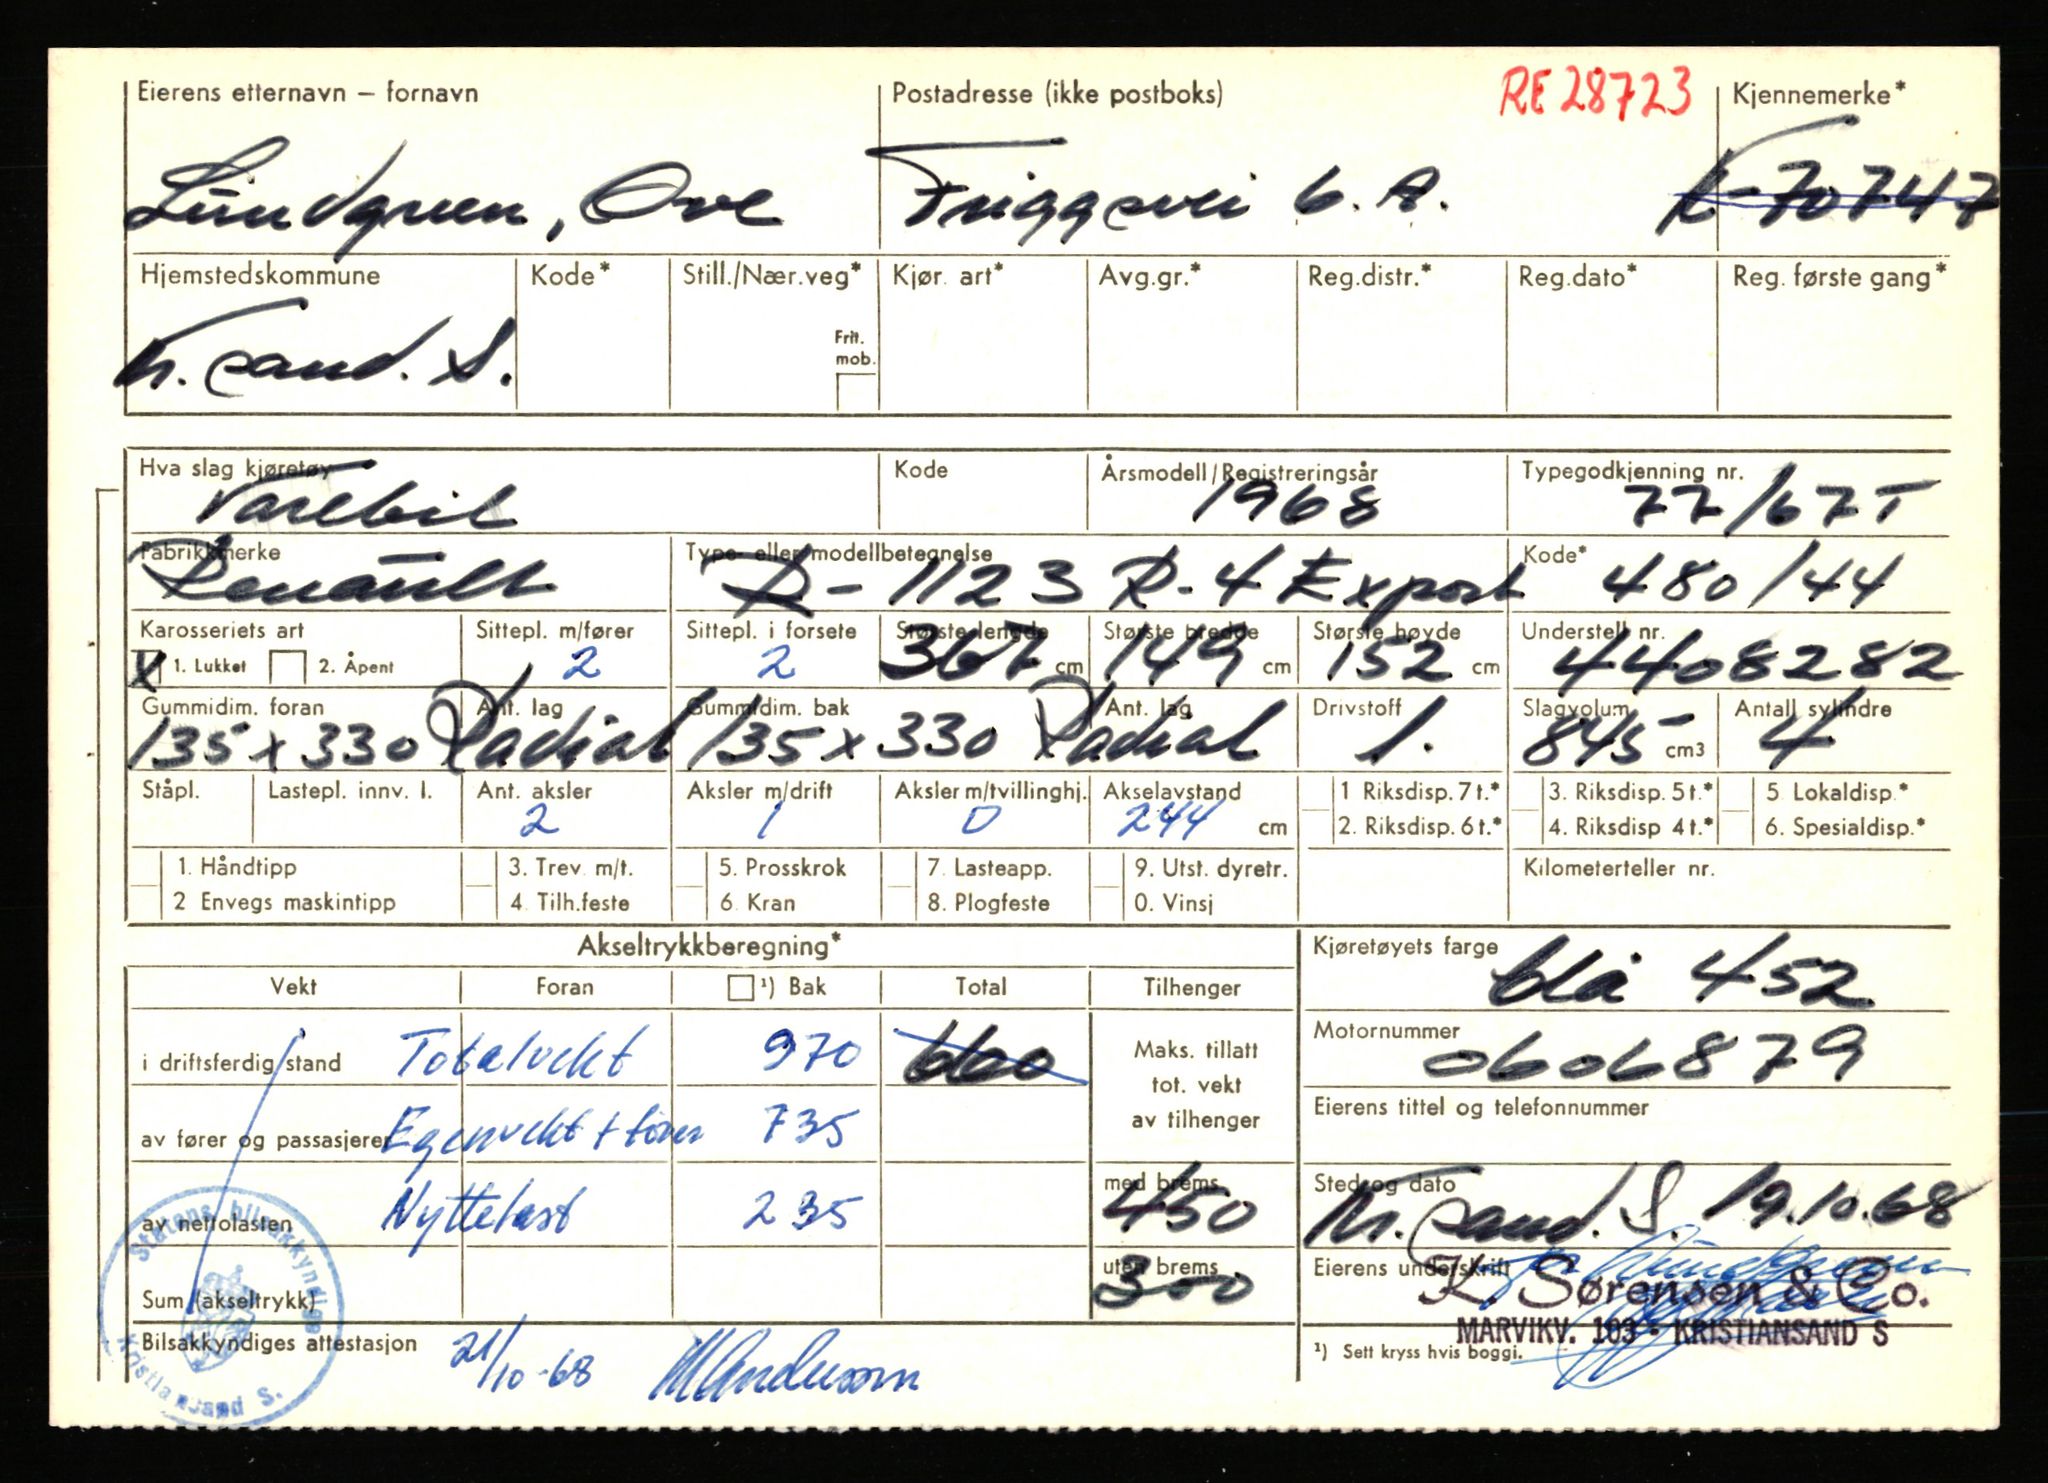 Eierens etternavn – fornavn Postadresse (ikke postboks) RE 28723 Kjennemerke*
Lundgren, Ove Friggsvei 6. A. K-70747
Hjemstedskommune Kode* Still./Nær.veg* Kjør. art* Avg.gr.* Reg.distr.* Reg.dato* Reg. første gang*
Kr. sand. S. Frit. mob.
Hva slag kjøretøy Kode Årsmodell/Registreringsår Typegodkjenning nr.
Varebil 1968 77/67T
Fabrikkmerke Type- eller modellbetegnelse Kode*
Renault R- 1123 R-4 Export 480/44
Karosseriets art Sittepl. m/fører Sittepl. i forsete Største lengde Største bredde Største høyde Understell nr.
X 1. Lukket 2. Åpent 2 2 367 cm 149 cm 152 cm 4408282
Gummidim. foran Ant. lag Gummidim. bak Ant. lag Drivstoff Slagvolum Antall sylindre
135 x 330 Radial 135 x 330 Radial 1. 845 cm3 4
Ståpl. Lastepl. innv. l. Ant. aksler Aksler m/drift Aksler m/tvillinghj. Akselavstand 1 Riksdisp. 7 t.* 3. Riksdisp. 5 t.* 5 Lokaldisp.*
2 1 0 244 cm 2. Riksdisp. 6 t.* 4. Riksdisp 4 t.* 6. Spesialdisp.*
1. Håndtipp 3. Trev. m/t. 5. Prosskrok 7. Lasteapp. 9. Utst. dyretr. Kilometerteller nr.
2 Envegs maskintipp 4. Tilh.feste 6. Kran 8. Plogfeste 0. Vinsj
Akseltrykkberegning* Kjøretøyets farge
blå 452
Vekt Foran ¹) Bak Total Tilhenger
Motornummer
i driftsferdig stand Totalvekt 970 660 Maks. tillatt tot. vekt av tilhenger 0606879
Eierens tittel og telefonnummer
av fører og passasjerer Egenvekt + fører 735
med brems Sted og dato
av nettolasten Nyttelast 235 450 Kr. sand. S. 19.10.68
uten brems Eierens underskrift
Sum (akseltrykk) 300 K. Sørensen & Co.
MARVIKV. 103 - KRISTIANSAND S
Bilsakkyndiges attestasjon 21/10-68 ¹) Sett kryss hvis boggi.
Statens bilsakkyndige
Kristiansand S.